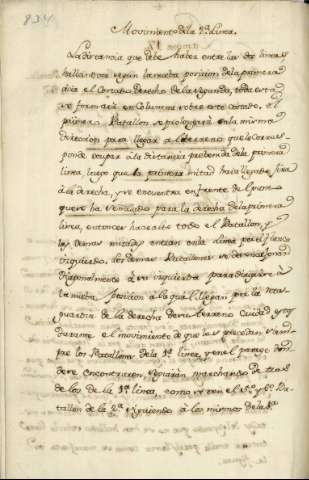 834
Movimiento de la 2ª Linea.
La distancia que debe haber entre las dos lineas
hallandose según la nueva posicion de la primera
sobre el Costado derecho de la segunda, toda esta
se formará en Columna sobre este costado, el
primer Batallon se prolongará en la misma
direccion para llegar al terreno que le corres-
ponde ocupar a la distancia prebenida de la primera
linea, luego que la primera mitad haia llegado
a la derecha, y se encuentre en frente del punto
que se ha señalado para la derecha de la primera
linea, entonces hará alto todo el Batallon, y
las demas mitades entran en la linea por el flanco
izquierdo, los demas Batallones
Diagonalmente a su izquierda para dirigirse a
la nueva Posicion a la qual llegan por la reta-
guardia de la derecha de su terreno
durante el movimiento de que les precedan siem-
pre los Batallones de la 1ª linea, y en el parage don-
de se encontraren, seguirán marchando detras
de los de la 1ª linea, como se ven el 5º y 6º Ba-
tallon de la 2ª siguiendo a los mismos de la 1ª